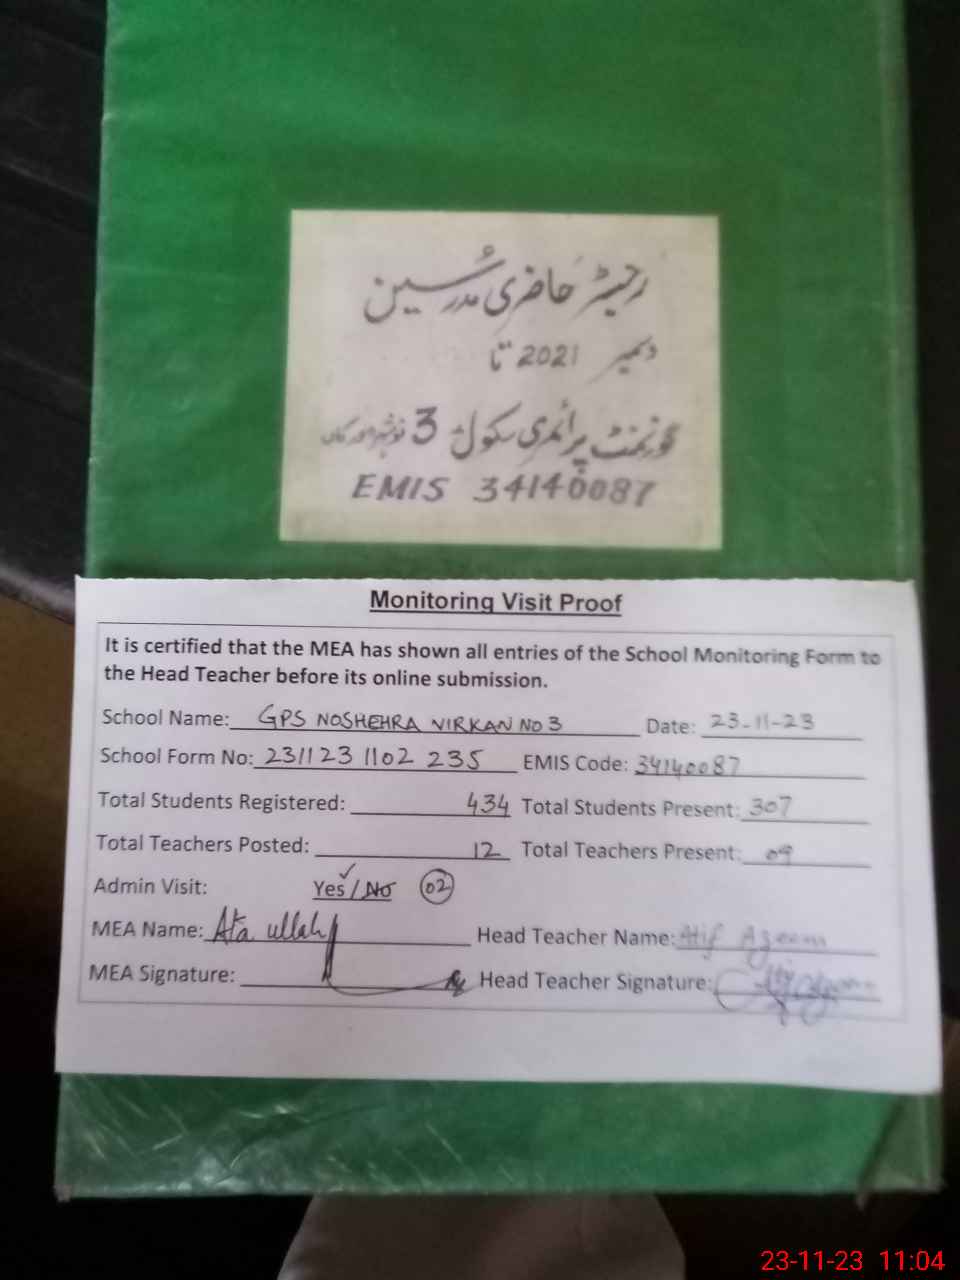 رجسٹر حاضری مدرسین
دسمبر 2021 تا
گورنمنٹ پرائمری سکول 3 نوشہرہ ورکاں
EMIS 34140087
Monitoring Visit Proof
It is certified that the MEA has shown all entries of the School Monitoring Form to
the Head Teacher before its online submission.
School Name: GPS NOSHEHRA VIRKAN NO 3 Date: 23-11-23
School Form No: 231123 1102 235 EMIS Code: 34140087
Total Students Registered: 434 Total Students Present: 307
Total Teachers Posted: 12 Total Teachers Present: 09
Admin Visit: Yes/No 02
MEA Name: Ata ullah Head Teacher Name: Atif Azeem
MEA Signature: Head Teacher Signature:
23-11-23 11:04